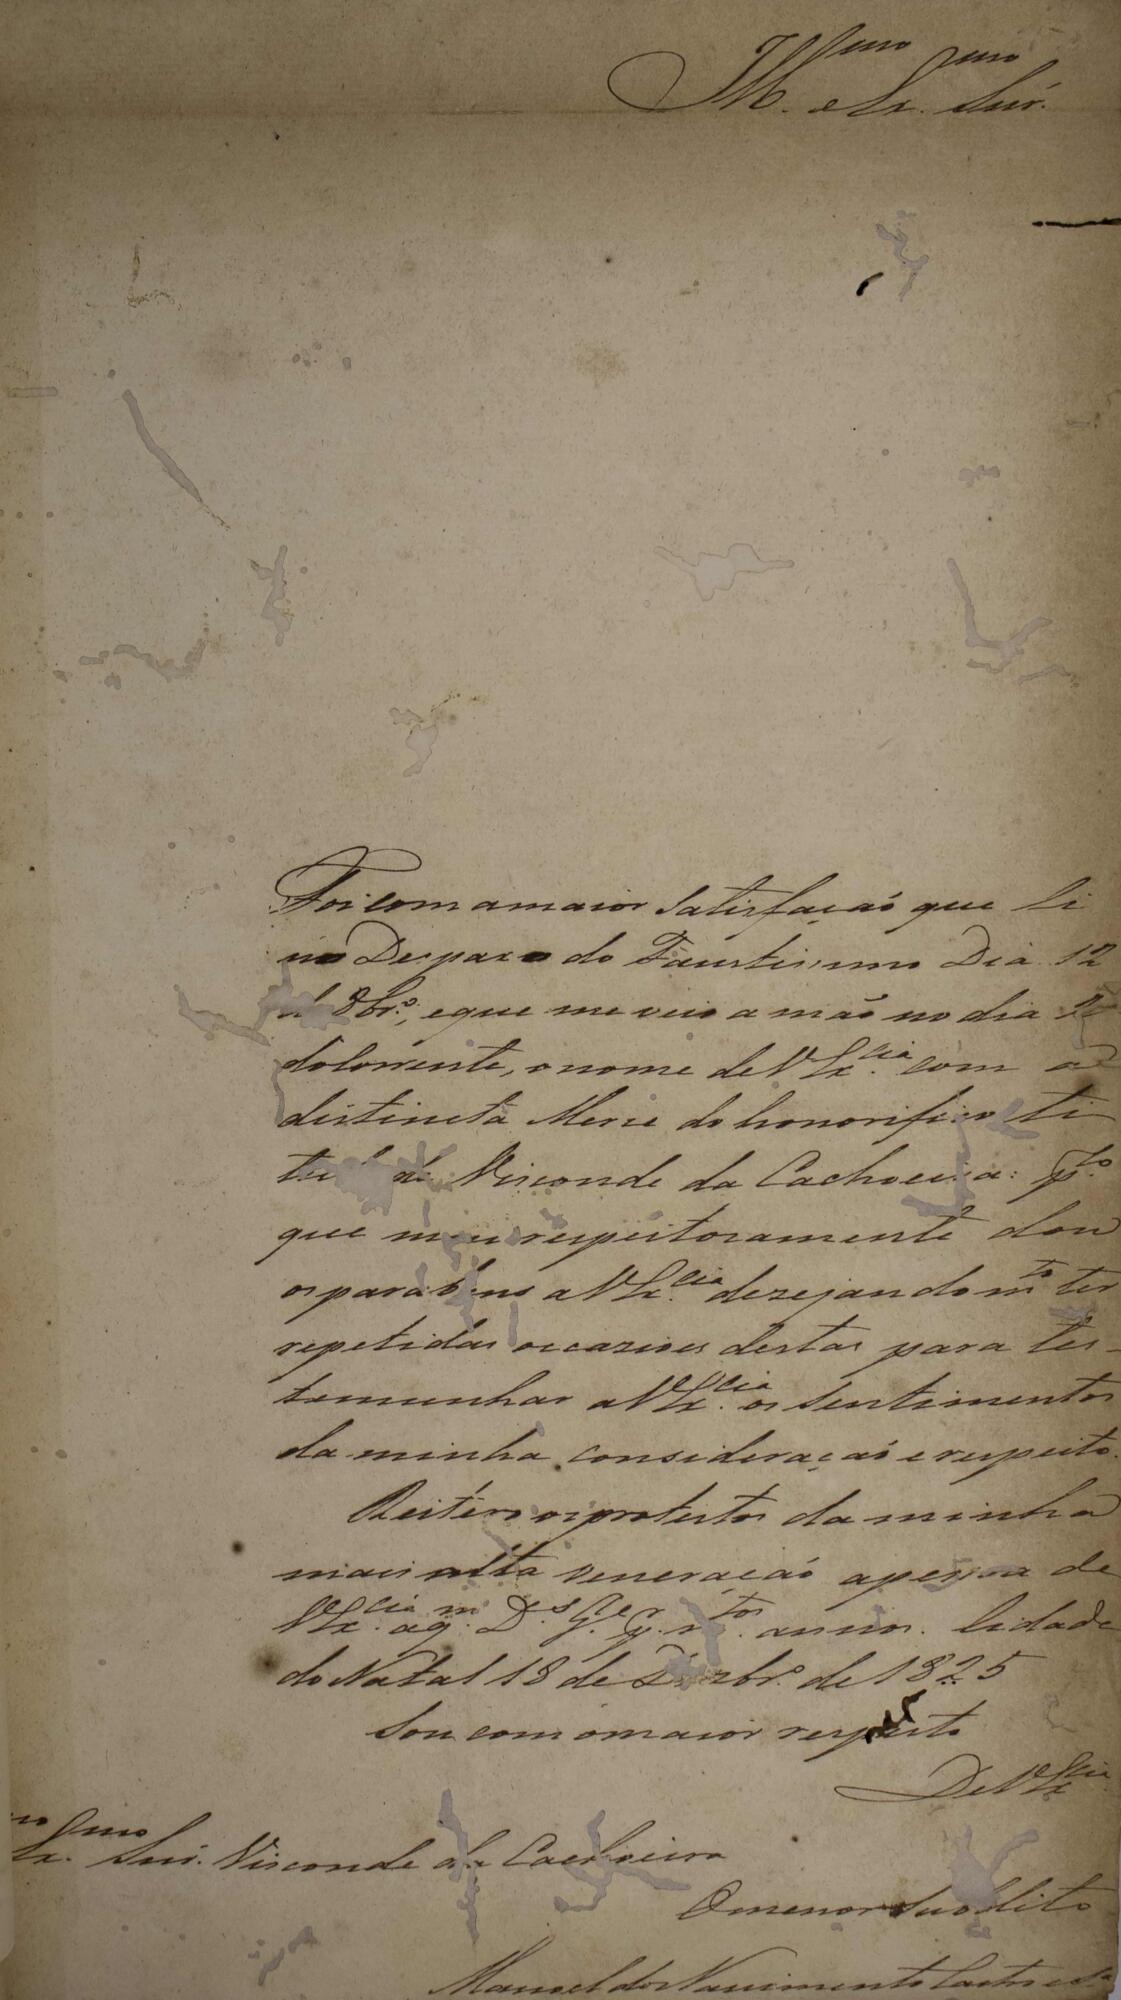 Ill.mo e Ex.mo Snr.
Foi com a maior satisfação que li
no Despaxo do Faustissimo Dia 12
de 8br.o, e que me veio a mão no dia
do Corrente, o nome de V Ex.cia com a
distincta Merce do honorifico ti
tulo de Visconde da Cachoeira: p.lo
que mui respeitosamente dou
os parabens a V Ex.cia dezejando m.to ter
repetidas occazioes destas para tes-
temunhar a V Ex.cia os sentimentos
da minha consideração e respeito.
Reitéro os protestos da minha
mais alta veneração a pessoa de
V Ex.cia a q.m D.s G.e p.r m.tos annos. Cidade
do Natal 18 de Dezbr.o de 1825
Sou com o maior respeito
De V Ex.cia
Ex.mo Snr. Visconde da Cachoeira
O menor Subdito
Manoel do Nascimento Castro e S.a